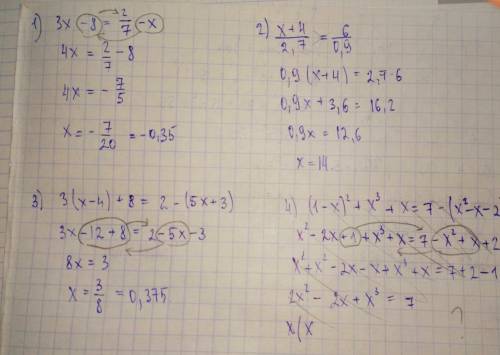 1) 3x - 8 = 2/7 - x
4x = 2/7 - 8
4x = - 7/5
x = - 7/20 = -0,35
2) x+4/2,7 = 6/0,9
0,9 (x+4) = 2,7·6
0,9x + 3,6 = 16,2
0,9x = 12,6
x = 14
3) 3(x-4)+8 = 2-(5x+3)
3x - 12 + 8 = 2 - 5x - 3
8x = 3
x = 3/8 = 0,375
4) (1-x)² + x³ + x = 7 - (x² - x - 2
x² - 2x + 1 + x³ + x = 7 - x² + x + 2
x² + x² - 2x - x + x³ + x = 7 + 2 - 1
2x² - 2x + x³ = 7
x(x
?